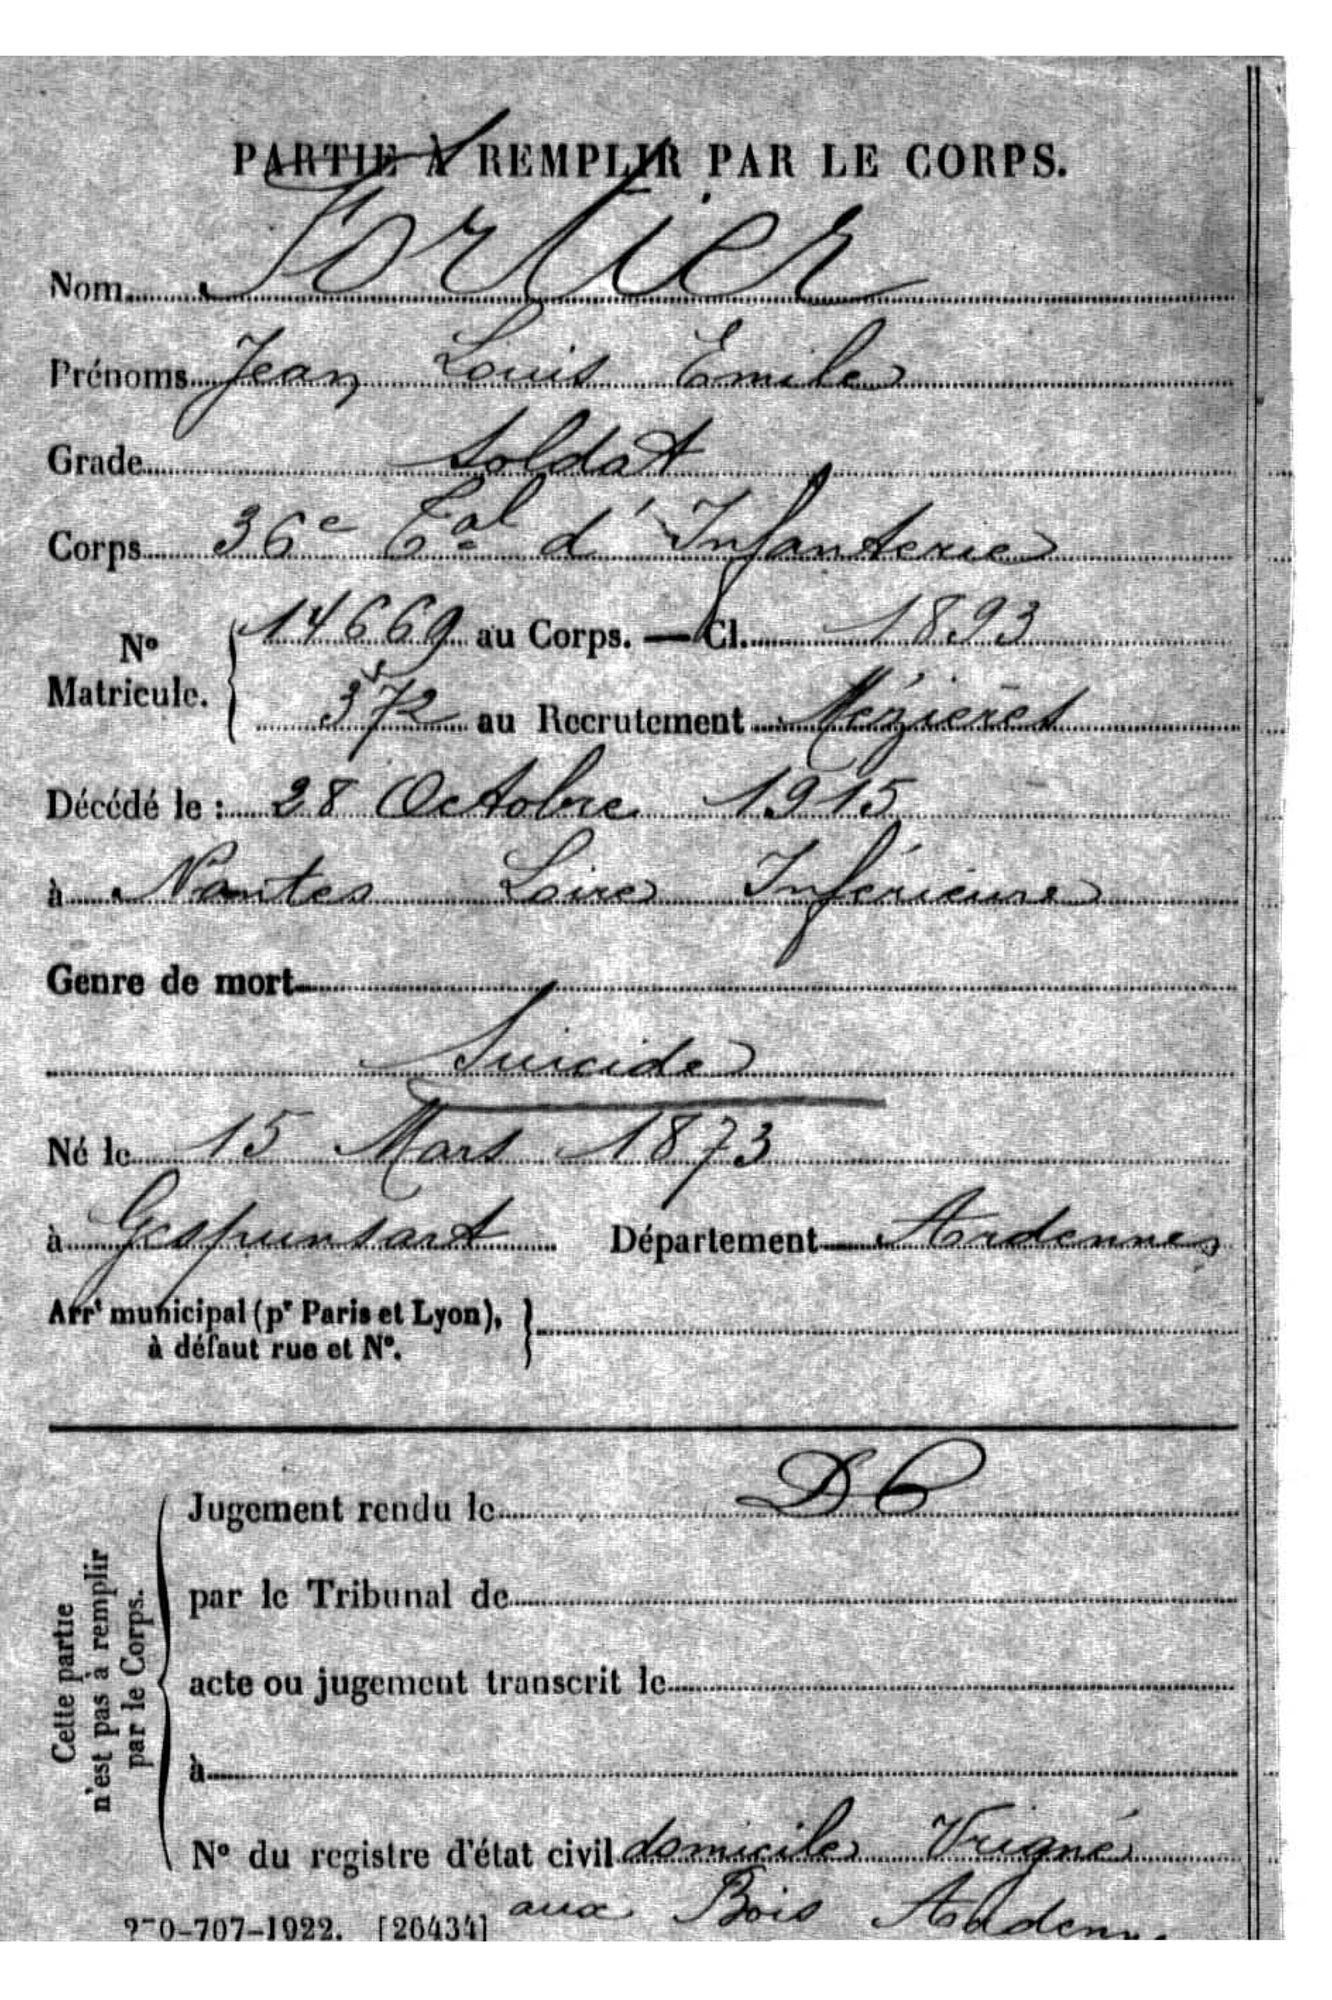 PARTIE À REMPLIR PAR LE CORPS.
Nom Fortier
Prénoms Jean Louis Emile
Grade Soldat
Corps 36e Tal d'Infanterie
No Matricule. 14669 au Corps. — Cl. 1893
372 au Recrutement Mézières
Décédé le : 28 Octobre 1915
à Nantes Loire Inférieure
Genre de mort
Suicide
Né le 15 Mars 1873
à Gespunsart Département Ardennes
Arrt municipal (pr Paris et Lyon),
à défaut rue et No.
Cette partie
n'est pas à remplir
par le Corps.
Jugement rendu le DC
par le Tribunal de
acte ou jugement transcrit le
à
No du registre d'état civil domicile Vrigne
aux Bois
0-707-1922. [26434]